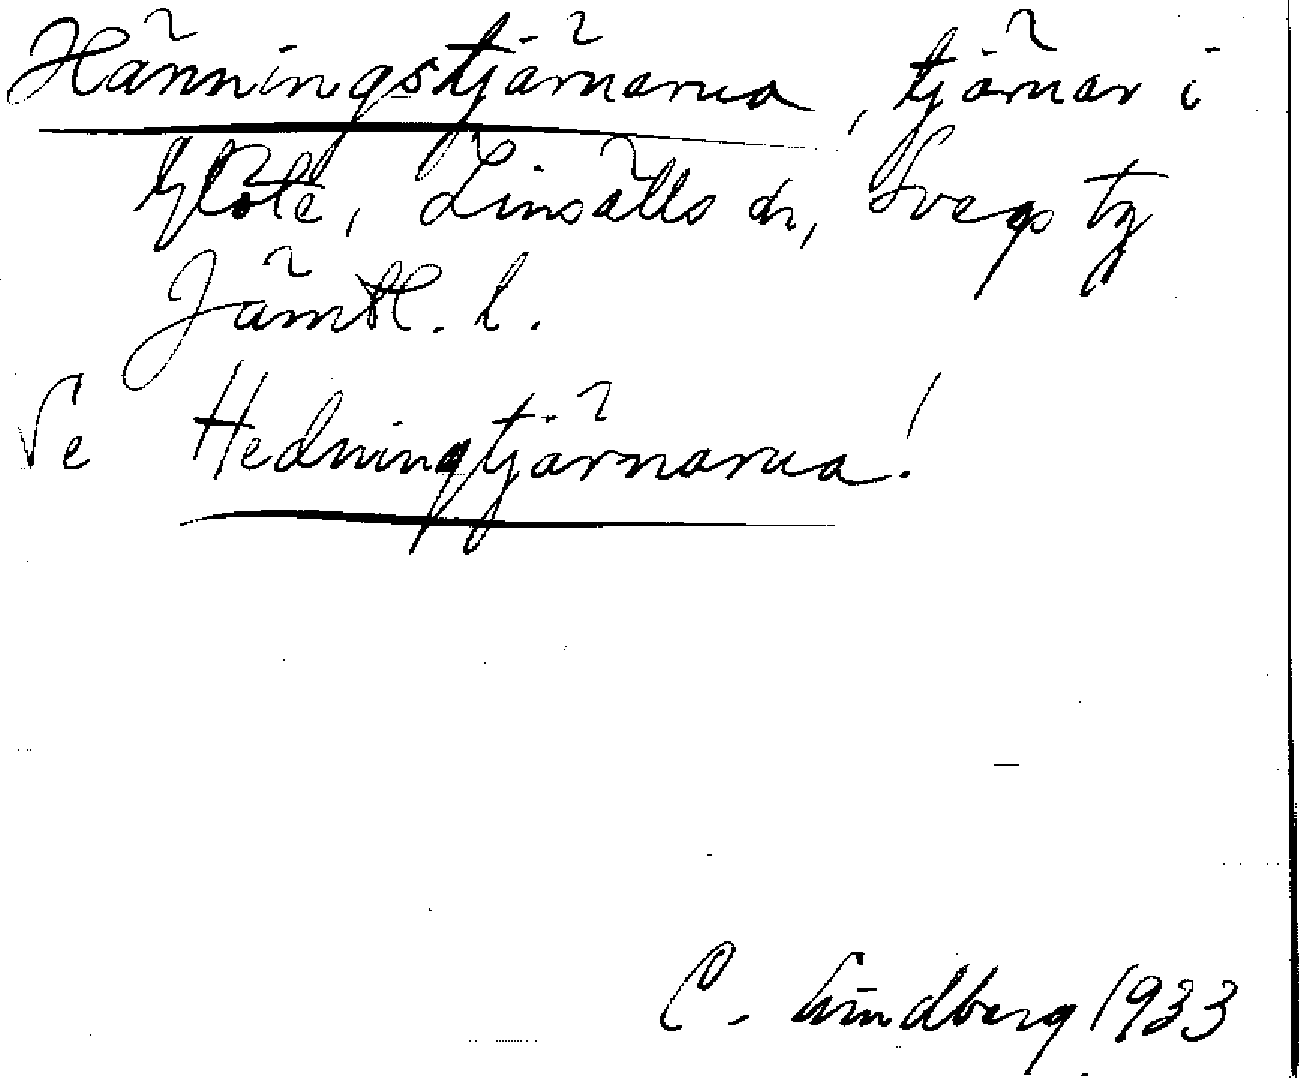 Hänningstjärnarna, tjärnar i
Glöte, Linsälls sn, Svegs tg
Jämtl. l.
Se Hedningtjärnarna!
C. Lindberg 1933